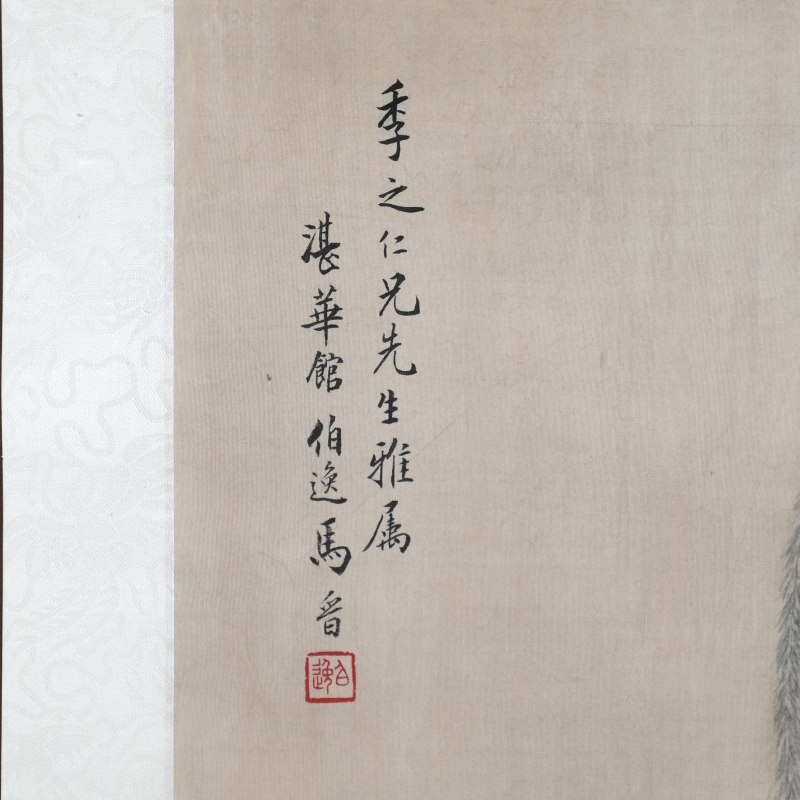 季之仁兄先生雅属
湛華館伯逸馬晉
伯逸